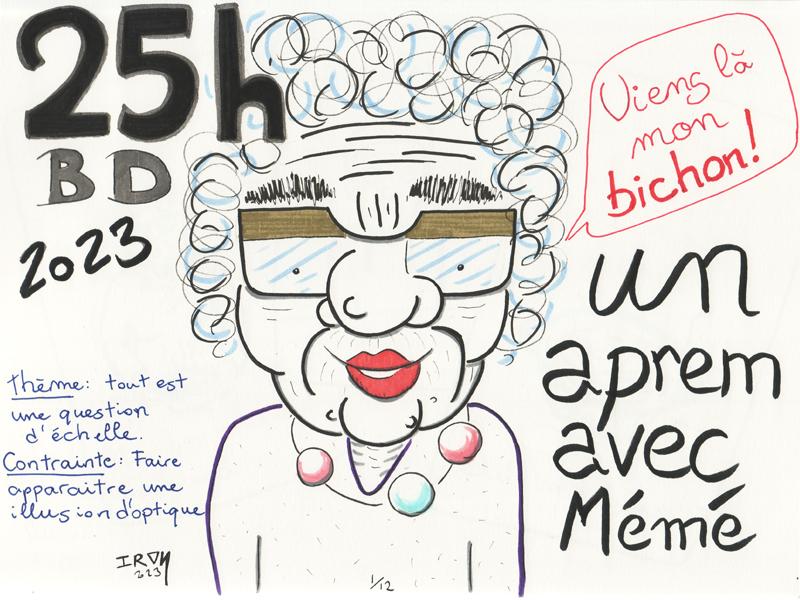 25h
BD
2023
Viens là
mon
bichon!
un
aprem
avec
Mémé
thème: tout est
une question
d'échelle.
Contrainte: Faire
apparaitre une
illusion d'optique
2023
1/12